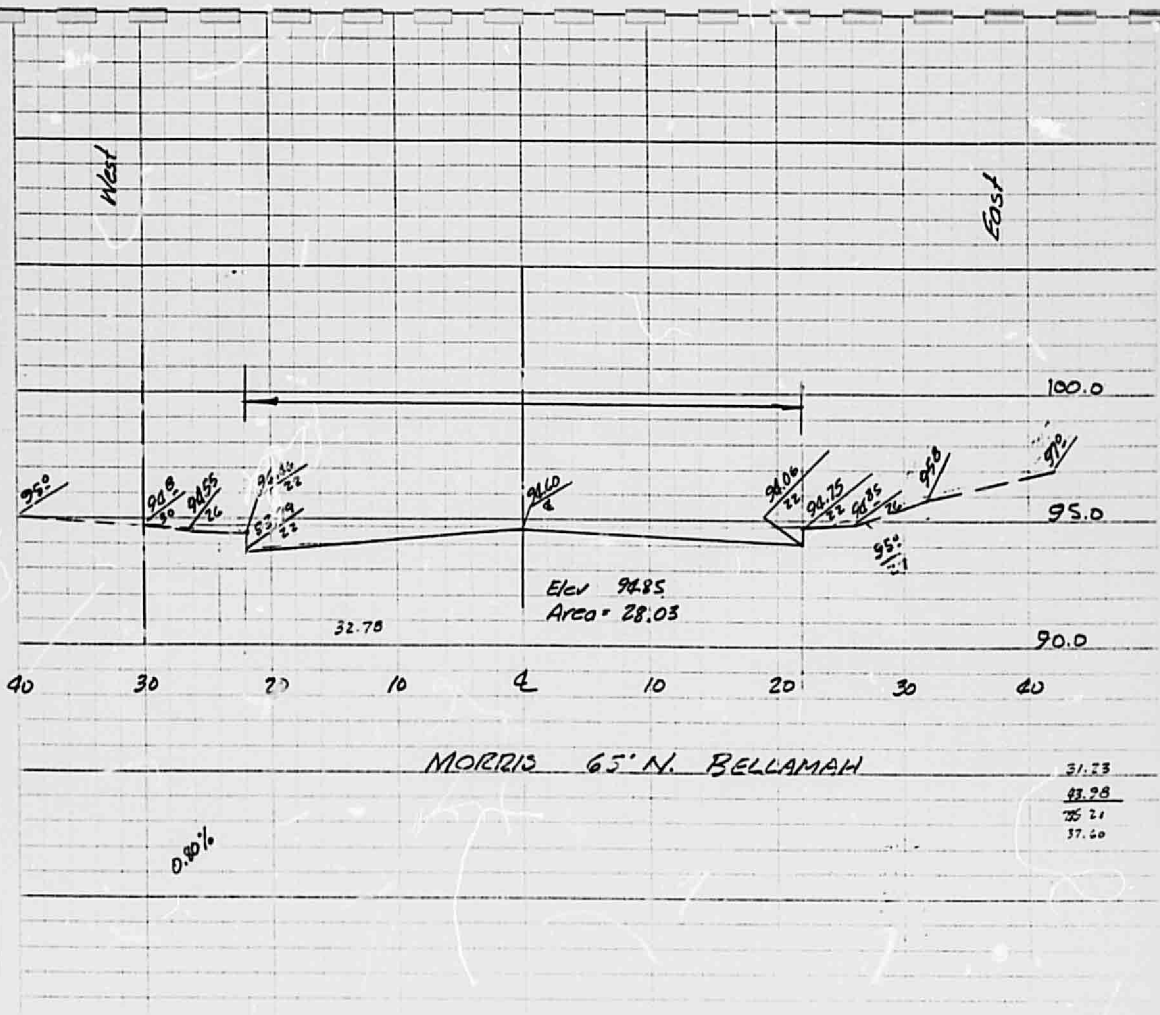 West
East
100.0
95º
94.8
30
94.55
26
22
93.79
22
94.60
℄
94.06
22
94.75
22
94.85
26
95.8
97º
95.0
95º
Elev 94.85
Area = 28.03
32.78
90.0
40 30 20 10 ℄ 10 20 30 40
MORRIS 65' N. BELLAMAH
31.23
43.98
37.60
0.80%